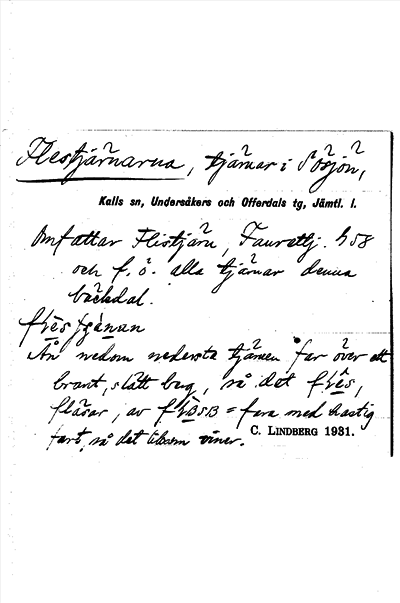 Flestjärnarna, tjärnar i Ösjön,
Kalls sn, Undersåkers och Offerdals tg, Jämtl. l.
Omfattar Flistjärn, Faurattj. h 58
och f. ö. alla tjärnar denna
bäckdal.
Ån nedom nedersta tjärnen far över ett
brant, slätt berg, så det
fläsar, av = fara med hastig
fart, så det liksom viner.
C. LINDBERG 1931.